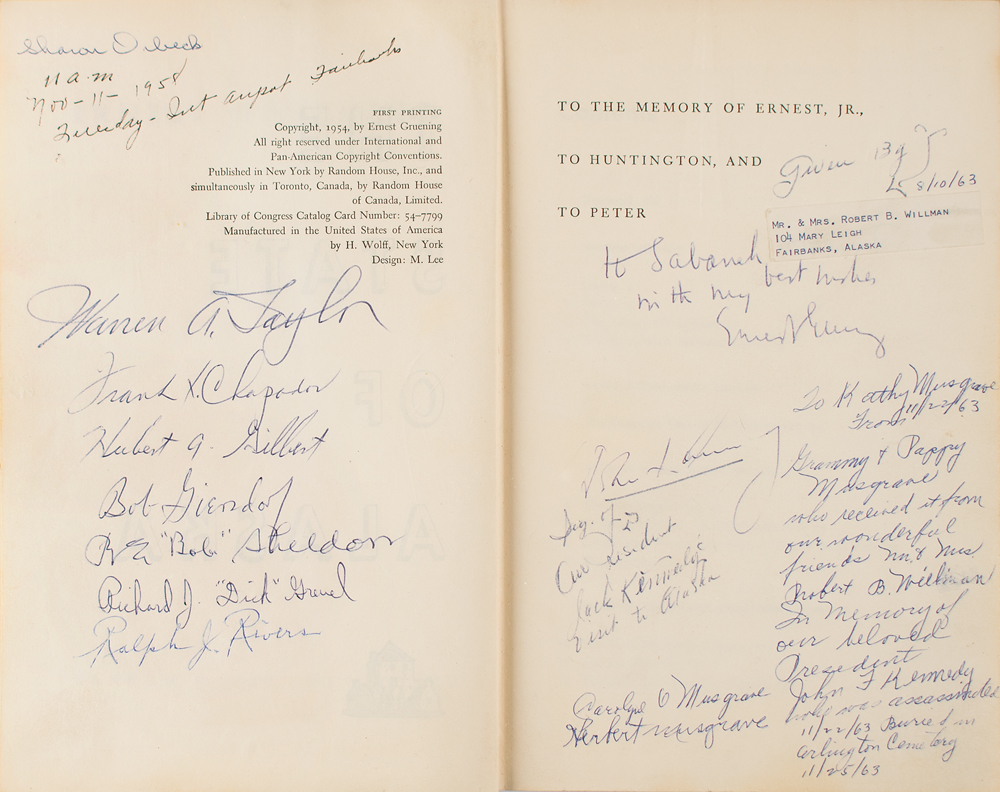 Sharon Orbeck
11 a.m
Nov-11-1958
Tuesday - Int airport Fairbanks
FIRST PRINTING
Copyright, 1954, by Ernest Gruening
All right reserved under International and
Pan-American Copyright Conventions.
Published in New York by Random House, Inc., and
simultaneously in Toronto, Canada, by Random House
of Canada, Limited.
Library of Congress Catalog Card Number: 54-7799
Manufactured in the United States of America
by H. Wolff, New York
Design: M. Lee
Warren A. Taylor
Frank X. Chapados
Hubert A. Gilbert
Bob Giersdorf
R E "Bob" Sheldon
Richard J. "Dick" Greuel
Ralph J. Rivers
TO THE MEMORY OF ERNEST, JR.,
TO HUNTINGTON, AND
TO PETER
Given By
8/10/63
MR. & MRS. ROBERT B. WILLMAN
104 MARY LEIGH
FAIRBANKS, ALASKA
to
with my best wishes
Ernest Gruening
Our President
Jack Kennedy's
visit to Alaska
Carolyne O Musgrave
Herbert Musgrave
To Kathy Musgrave
From 11/22/63
Grammy & Pappy
Musgrave
who received it from
our wonderful
friends Mr. & Mrs
Robert B. Willman
In Memory of
our beloved
President
John F Kennedy
who was assassinated
11/22/63 Buried in
Arlington Cemetery
11/25/63